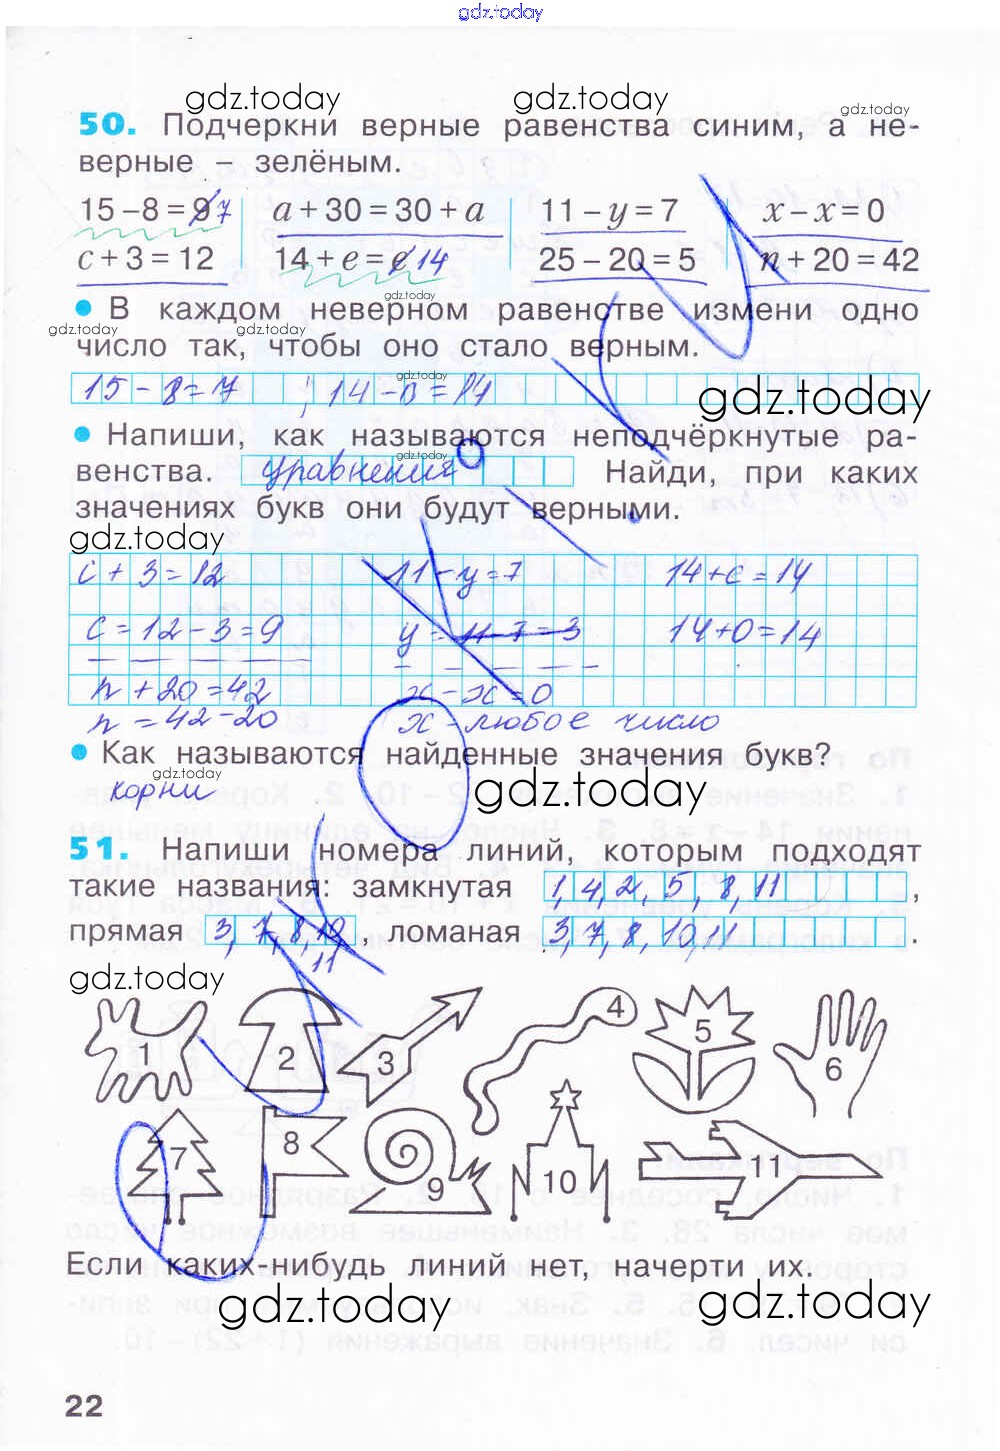 gdz.today
gdz.today gdz.today gdz.today
50. Подчеркни верные равенства синим, а не-
верные – зелёным.
15 – 8 = 9 7 a + 30 = 30 + a 11 – y = 7 x – x = 0
c + 3 = 12 14 + e = e 14 25 – 20 = 5 n + 20 = 42
gdz.today
• В каждом неверном равенстве измени одно
gdz.today gdz.today
число так, чтобы оно стало верным.
gdz.today
15 – 8 = 7 , 14 – 0 = 14 gdz.today
• Напиши, как называются неподчёркнутые ра-
gdz.today
венства. уравнения Найди, при каких
значениях букв они будут верными.
gdz.today
c + 3 = 12 11 – y = 7 14 + e = 14
c = 12 – 3 = 9 y = 11 – 7 = 3 14 + 0 = 14
n + 20 = 42 x – x = 0
n = 42 – 20 x – любое число
• Как называются найденные значения букв?
gdz.today
корни gdz.today
51. Напиши номера линий, которым подходят
такие названия: замкнутая 1, 4, 2, 5, 8, 11 ,
прямая 3, 7, 8, 10, 11 ломаная 3, 7, 8, 10, 11 .
gdz.today
1 2 3 4 5 6
7 8 9 10 11
Если каких-нибудь линий нет, начерти их.
gdz.today gdz.today
22